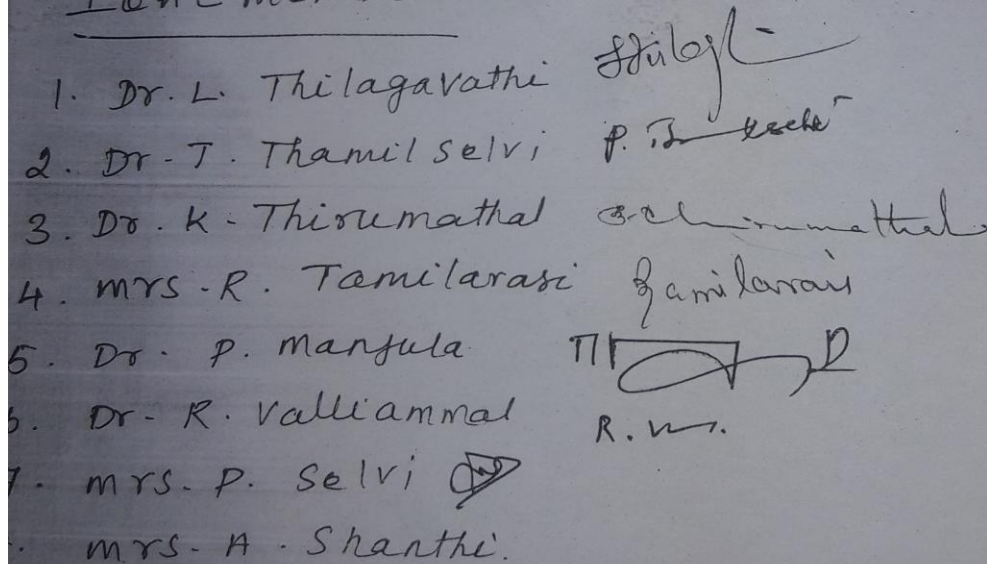 1. Dr. L. Thilagavathi
2. Dr - T. Thamil selvi P.
3. Dr. K - Thirumathal Thirumathal
4. mrs - R. Tamilarasi Tamilarasi
5. Dr - P. manjula
Dr - R. valliammal R.
7. mrs - P. Selvi
mrs - A. Shanthi.